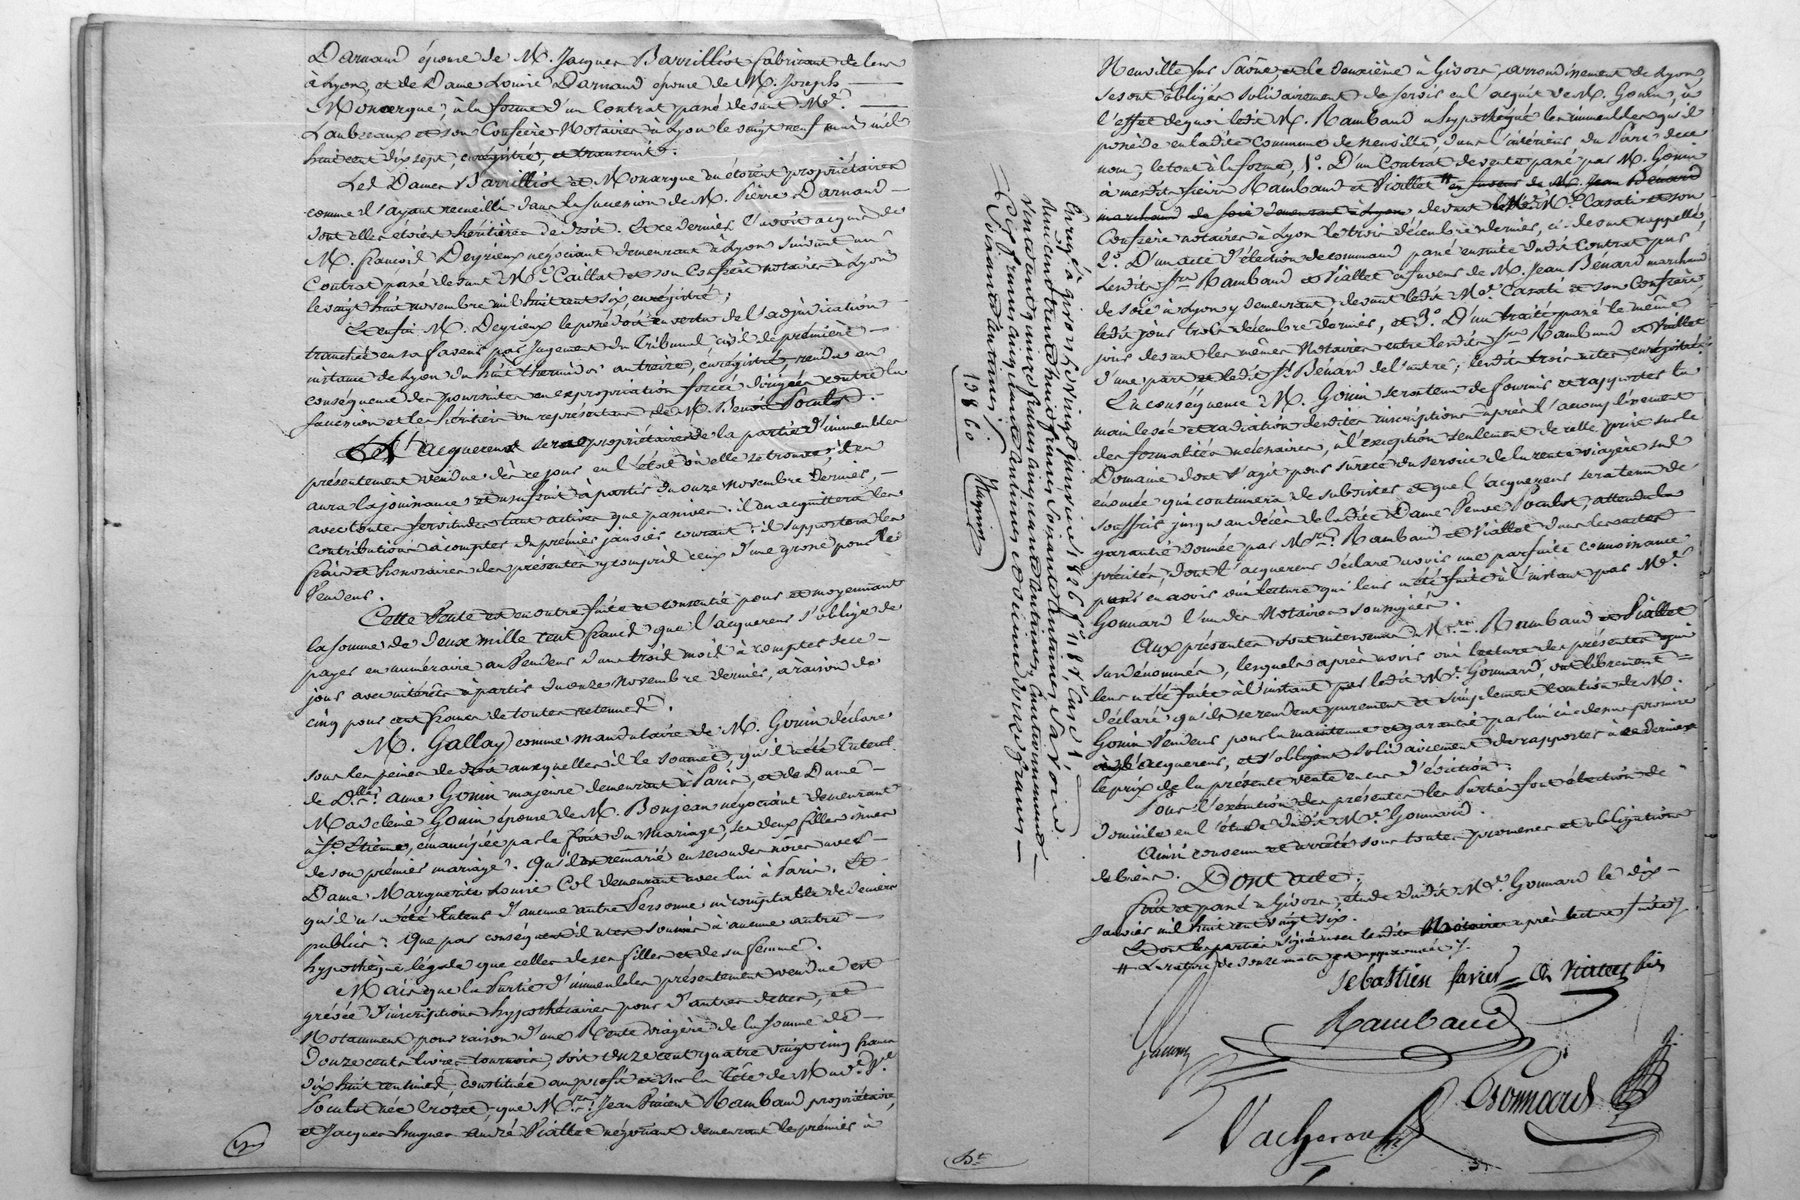 Darnaud épouse de M. Jacques Barrilliot fabricant de bas
à Lyon, et de Dame Louise Darnaud épouse de M. Joseph
Monarque, à la forme d'un Contrat passé devant Me.
et son Confrère Notaires à Lyon le vingt neuf mai mil
huit cent dix sept, enregistré, et transcrit.
Les Dames Barrilliot et Monarque en étoient propriétaires
comme l'ayant recueilli dans la succession de M. Pierre Darnaud
dont elles étoient héritières de droit. Et ce dernier l'avoit acquis de
M. françois Deyrieux négociant demeurant à Lyon suivant un
Contrat passé devant Me. Caillat et son Confrère notaires à Lyon
le vingt huit novembre mil huit cent six, enregistré;
Et enfin M. Deyrieux le possédoit en vertu de l'adjudication
tranchée en sa faveur par Jugement du Tribunal civil de première
instance de Lyon du huit thermidor an treize, enregistré, rendu en
conséquence des poursuites en expropriation forcée dirigées contre la
succession et les héritiers ou représentans de M. Benoit Poculot.
L'acquereur sera propriétaire de la partie d'immeubles
présentement vendue dès ce jour en l'état où elle se trouve, il en
aura la jouissance et usufruit à partir du onze novembre dernier,
avec toutes servitudes tant actives que passives: il en acquittera les
contributions à compter du premier janvier courant: il supportera les
frais et honoraires des présentes y compris ceux d'une grosse pour le
Vendeur.
Cette Vente est en outre faite et consentie pour et moyennant
la somme de deux mille cent francs que l'acquereur s'oblige de
payer en numéraire au Vendeur dans trois mois à compter de ce
jour avec intérêts à partir du onze novembre dernier, à raison de
cinq pour cent francs de toutes retenues.
M. Gallay comme mandataire de M. Gouin déclare
sous les peines de droit auxquelles il le soumet, qu'il a été Tuteur
de Dlle. anne Gouin majeure demeurant à Paris, et de Dame
Madeleine Gouin épouse de M. Bonjean négociant demeurant
à St. Etienne, emancipée par le fait du mariage, ses deux filles issues
de son premier mariage. Qu'il est remarié en secondes noces avec
Dame Marguerite Louise Col demeurant avec lui à Paris. Et
qu'il n'a été Tuteur d'aucune autre Personne ni comptable de deniers
publics. Que par conséquent il n'est soumis à aucune autre
hypothèque légale que celles de ses filles et de sa femme.
Mais que la Partie d'immeubles présentement vendue est
grévée d'inscriptions hypothécaires pour d'autres dettes, et
Notamment pour raison d'une Rente viagère de la somme de
Douze cents livres tournois, soit onze cent quatre vingt cinq francs
dix huit centimes, constituée au profit et sur la tête de Made. Ve.
Poculot née Crozet, que Mrs. Jean Vincent Rambaud propriétaire,
et Jacques hugues andré Viallet négociant demeurant le premier à
Neuville sur Saône et le deuxième à Givors, arrondissement de Lyon,
se sont obligés solidairement de servir en l'acquit de M. Gouin, à
l'effet de quoi ledit M. Rambaud a hypothéqué les immeubles qu'il
possède en ladite commune de neuville, dans l'intérieur du Parc de ce
nom, le tout à la forme, 1º. D'un Contrat de vente passé par M. Gouin
à mesdits sieurs Rambaud et Viallet # en faveur de M. Jean Bénard
marchand de soie demeurant à Lyon devant Me. Casati et son
Confrère notaires à Lyon le trois décembre dernier, ci-devant rappellé
2º. D'un acte d'élection de command passé ensuite dudit Contrat par
lesdits Srs. Rambaud et Viallet en faveur de M. Jean Bénard marchand
de soie à Lyon y demeurant, devant ledit Me. Casati et son Confrère,
ledit jour trois décembre dernier, et 3º. D'un traité passé le même
jour devant les mêmes Notaires entre lesdits Srs. Rambaud et Viallet
d'une part et ledit Sr. Bénard de l'autre; lesdits trois actes enregistrés.
En conséquence M. Gouin sera tenu de fournir et rapporter la
main levée et radiation desdites inscriptions après l'accomplissement
des formalités nécessaires, à l'exception seulement de celle prise sur le
Domaine dont s'agit pour sûreté du service de la rente viagère sus
énoncée qui continuera de subsister et que l'acquereur sera tenu de
souffrir jusqu'au décès de ladite Dame Veuve Poculot, attendu la
garantie donnée par Mrs. Rambaud et Viallet dans les actes
précités, dont l'acquereur déclare avoir une parfaite connoissance
pour en avoir ouï lecture qui leur a été faite à l'instant par Me.
Gonnard l'un des Notaires soussignés.
Aux présentes sont intervenus Mrs. Rambaud et Viallet
susdénommés, lesquels après avoir ouï lecture des présentes qui
leur a été faite à l'instant par ledit Me. Gonnard, ont librement
déclaré qu'ils se rendent purement et simplement caution de M.
Gouin Vendeur pour la maintenue et garantie par lui ci-dessus promise
à l'acquereur, et s'obligent solidairement de rapporter à ce dernier
le prix de la présente vente en cas d'éviction.
Pour l'exécution des présentes les Parties font élection de
domicile en l'étude dudit Me. Gonnard.
Ainsi convenu et arrêté sous toutes promesses et obligations
de biens. Dont acte.
fait et passé à Givors, étude dudit Me. Gonnard le dix
Janvier mil huit cent vingt six.
Et ont les parties signé avec lesdits Notaires après lecture faite.
# La rature de douze mots est approuvée.
Sébastien favier
Rambaud
Gonnard
Vacheron
Enregé. à givors le vingt janvier 1826 fº 118 Vº Case 1
vingt quinze francs cinquante centimes, Cautionnement
dix francs cinquante centimes et décime onze francs
Soixante centimes.
138 60